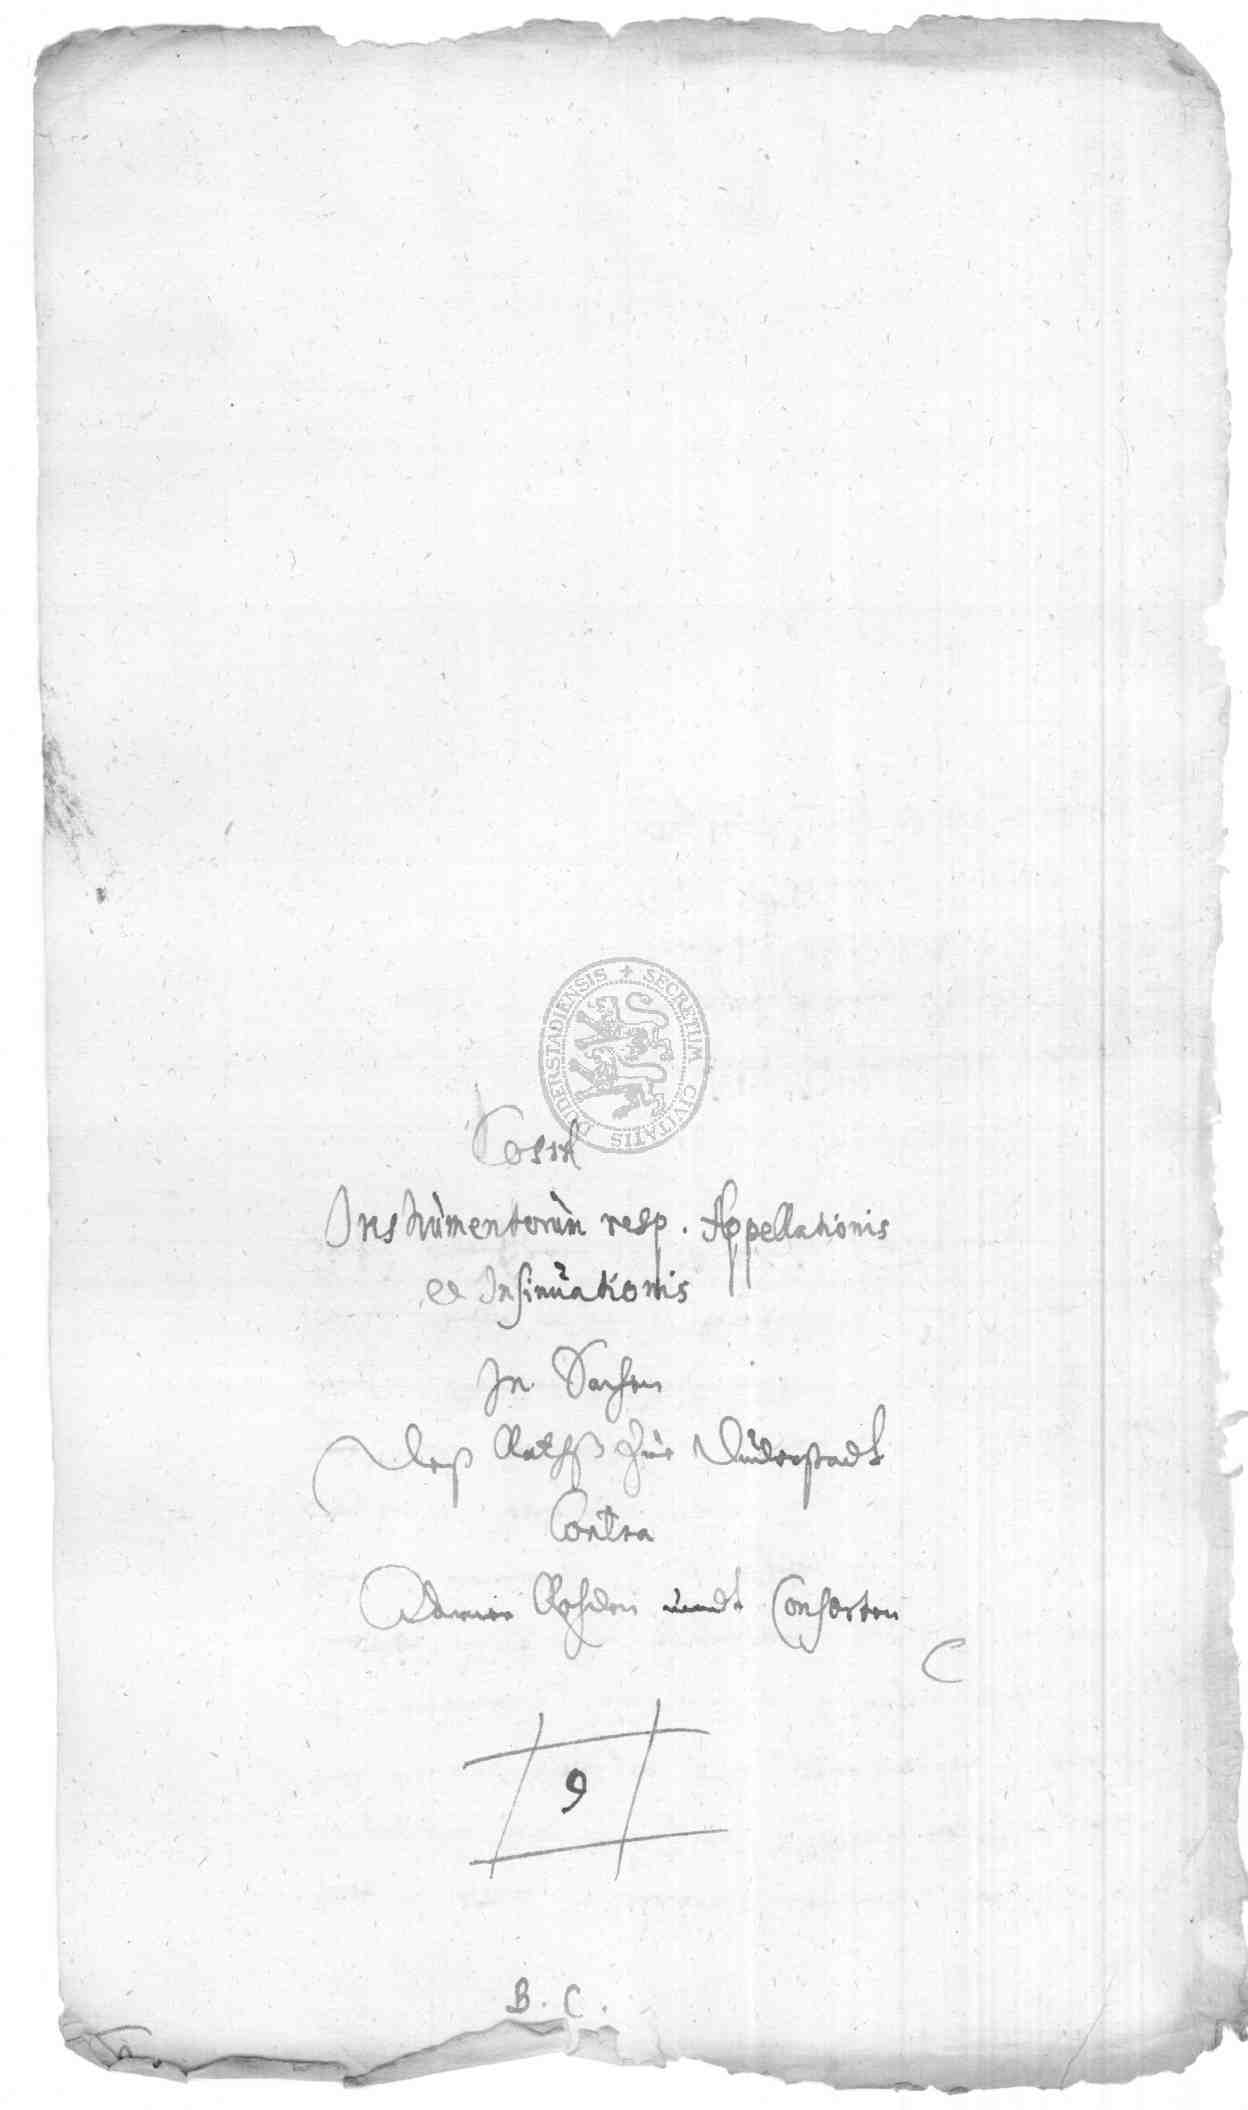 SECRETUM CIVITATIS DUDERSTADIENSIS
Instrumentorum resp. Appellationis
et Insinuationis
In Sachen
Deß Rathß zue Duderstadt
Contra
undt Consorten
9
B. C.